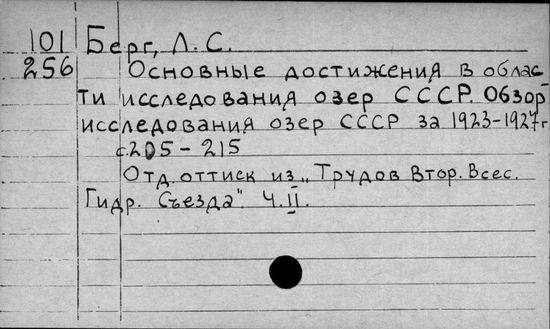 101 Берг, Л. С.
256 Основные достижения в облас
ти исследования озер СССР. Обзор
исследования озер СССР за 1923-1927 г
с.205 - 215
Отд. оттиск из „Трудов Втор. Всес.
Гидр. Съезда". Ч. II.